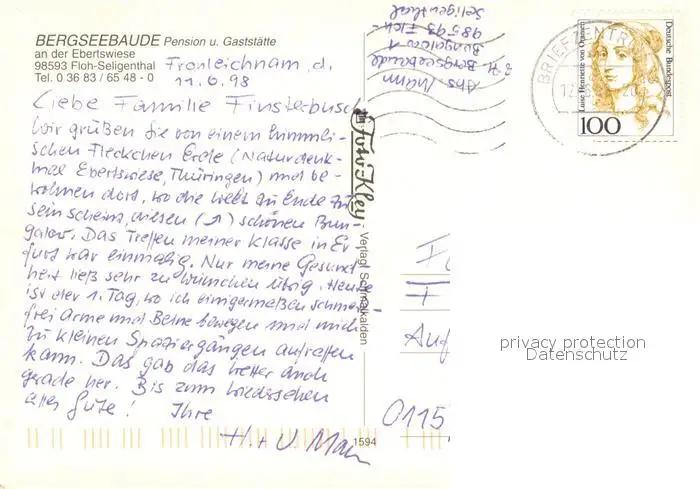 BERGSEEBAUDE Pension u. Gaststätte
an der Ebertswiese
98593 Floh-Seligenthal
Tel. 0 36 83 / 65 48 - 0
Fronleichnam, d.
11.6.98
Liebe Familie Finsterbusch
wir grüßen Sie von einem himmli-
schen Fleckchen Erde (Naturdenk-
mal Ebertswiese, Thüringen) und be-
wohnen dort, wo die Welt zu Ende zu
sein scheint, diesen (↗) schönen Bun-
galow. Das Treffen meiner Klasse in Er
furt war einmalig. Nur meine Gesund
heit ließ sehr zu wünschen übrig. Heute
ist der 1. Tag, wo ich einigermaßen schmerz
frei Arme und Beine bewegen und mich
zu kleinen Spaziergängen aufraffen
kann. Das gab das Wetter auch
gerade her. Bis zum Wiedersehen
alles Gute! Ihre
H. + U.
Abs.
z. Zt. Bergseebaude
Bungalow 1
98593 Floh-
Seligenthal
Foto Kley
Verlag Schmalkalden
1594
BRIEFZENTRUM
Deutsche Bundespost
Luise Henriette von Oranien
100
F
F
Auf
0115
privacy protection
Datenschutz